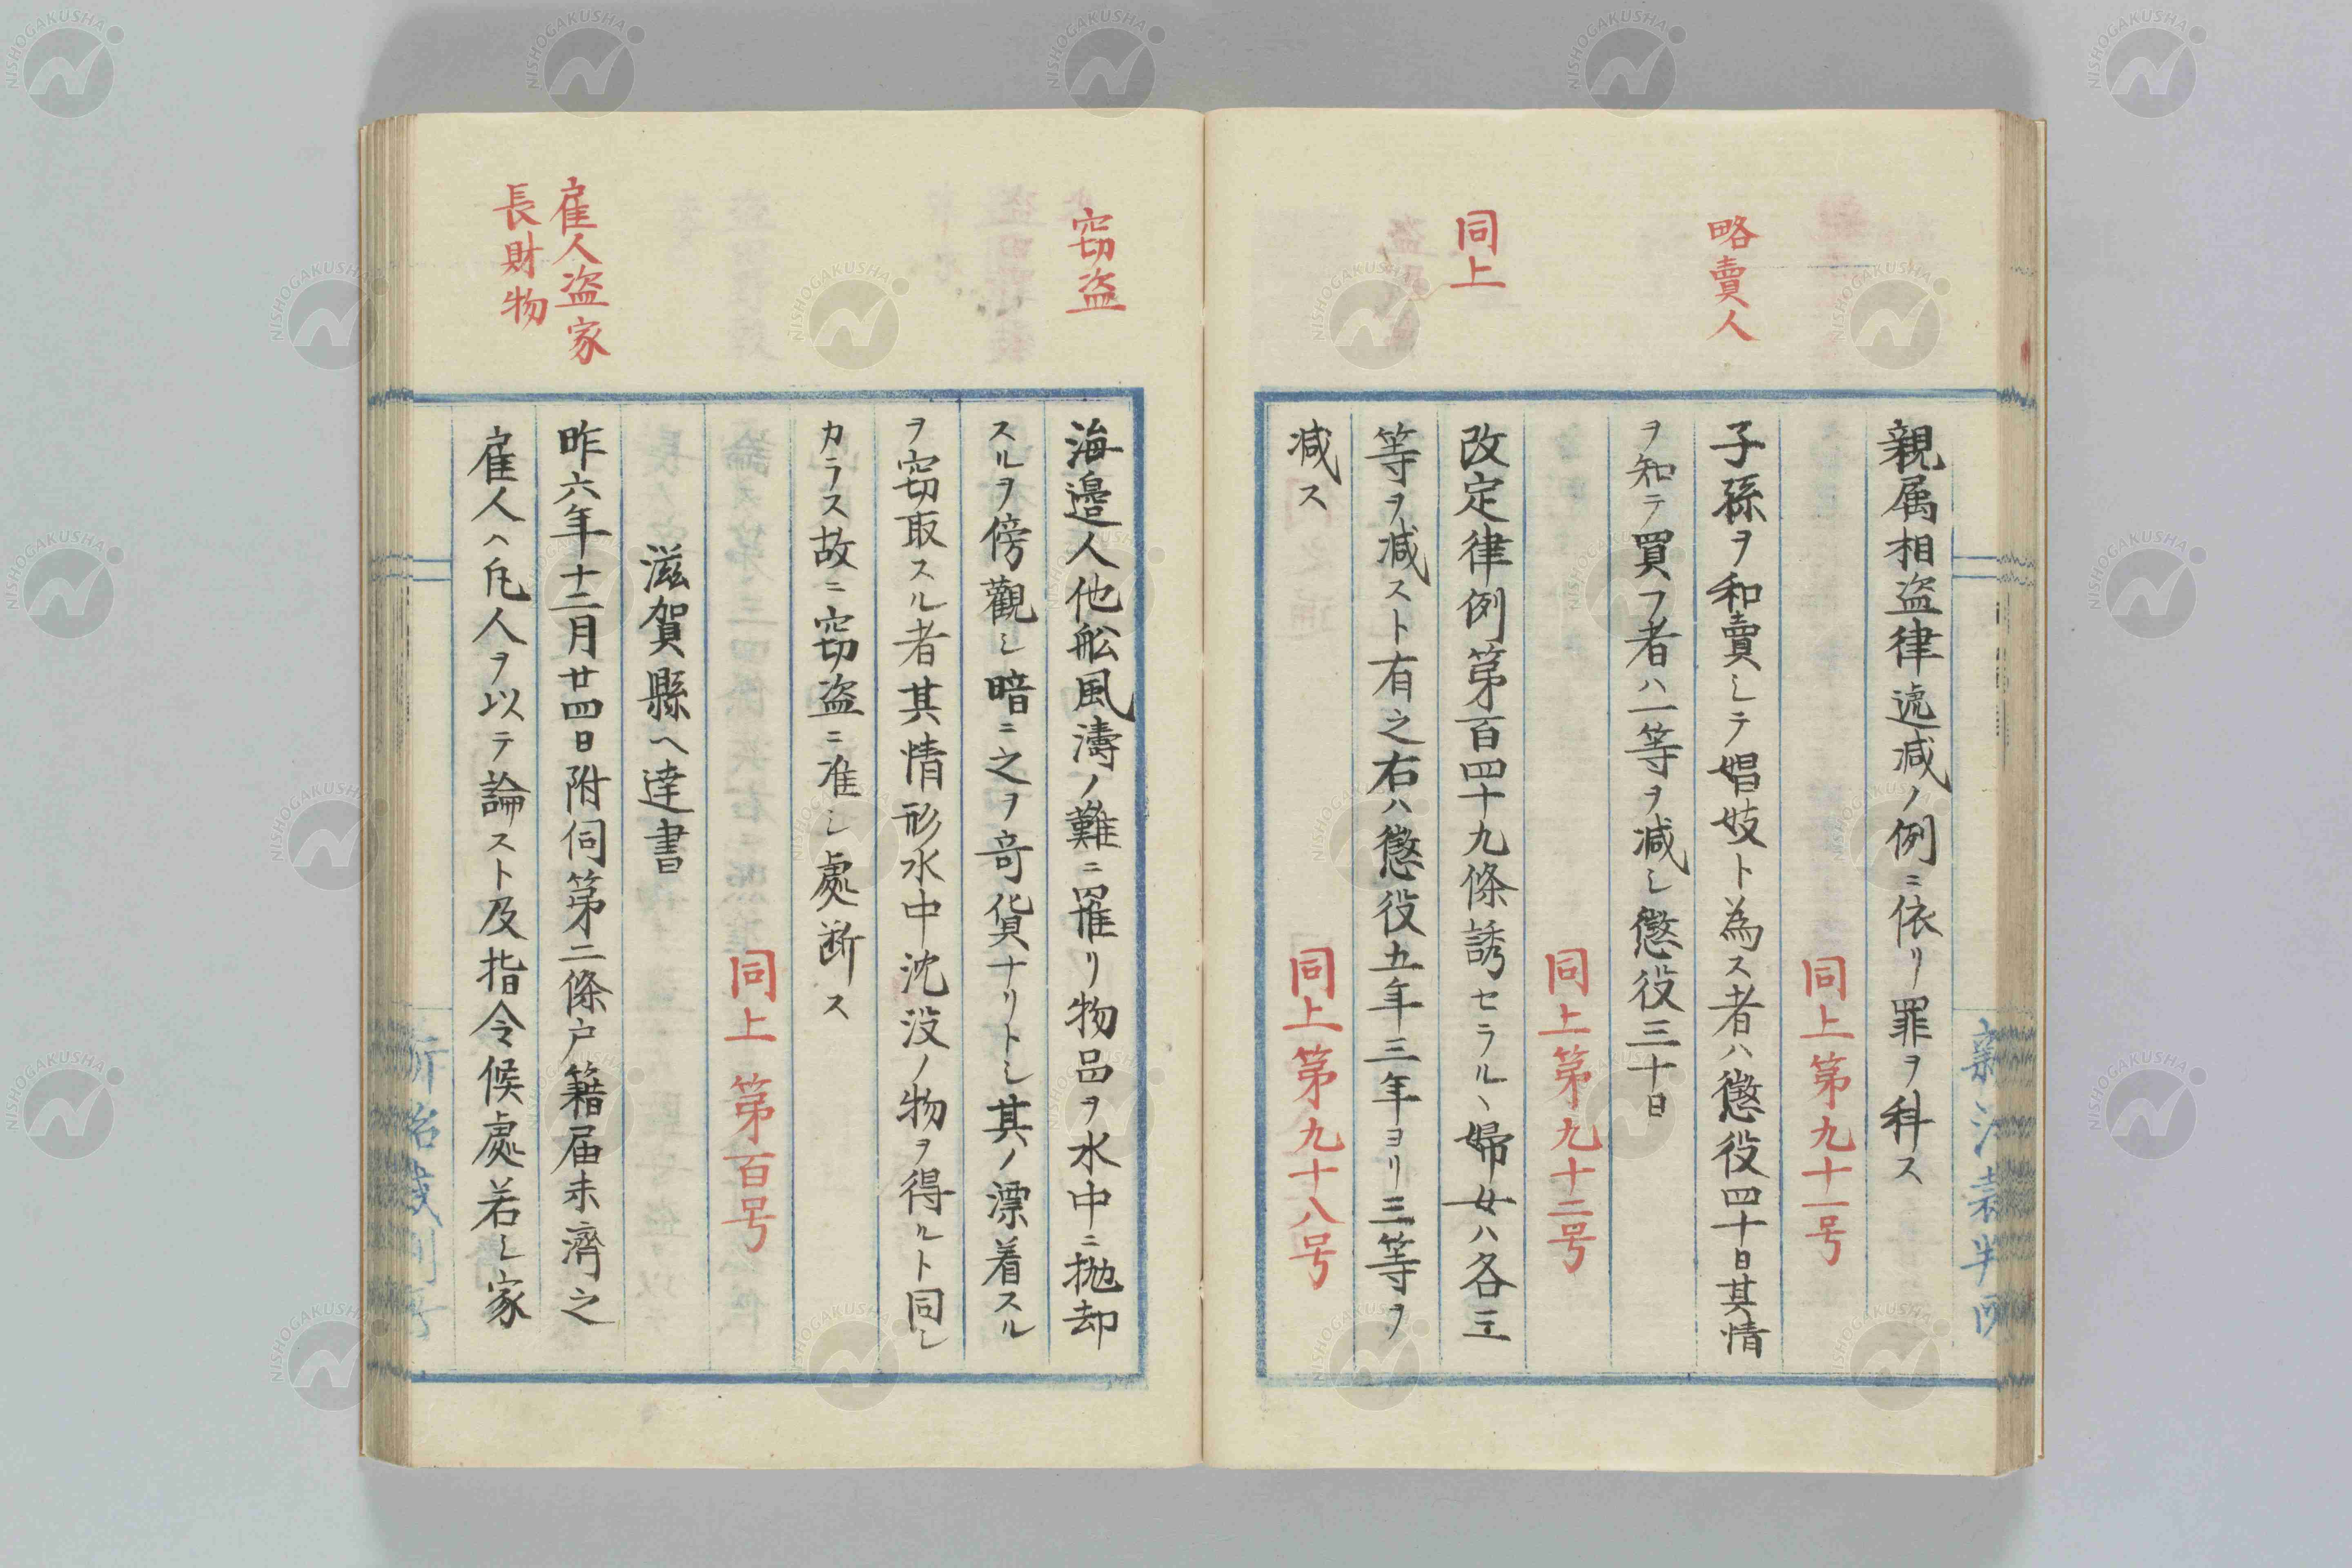 親属相盗律逓減ノ例ニ依リ罪ヲ科ス
同上第九十一号
略賣人
子孫ヲ和賣シテ娼妓ト為ス者ハ懲役四十日其情
ヲ知テ買フ者ハ一等ヲ减シ懲役三十日
同上第九十二号
同上
改定律例第百四十九條誘セラル丶婦女ハ各三
等ヲ减スト有之右ハ懲役五年三年ヨリ三等ヲ
减ス
同上第九十八号
窃盗
海邉人他舩風濤ノ難ニ罹リ物品ヲ水中ニ抛却
スルヲ傍觀シ暗ニ之ヲ奇貨ナリトシ其ノ漂着スル
ヲ窃取スル者其情形水中沈没ノ物ヲ得ルト同シ
カラス故ニ窃盗ニ准シ處断ス
同上第百号
滋賀縣ヘ達書
雇人盗家
長財物
昨六年十二月廿四日附伺第二條戸籍届未濟之
雇人ハ凡人ヲ以テ論スト及指令候處若シ家
NISHOGAKUSHA